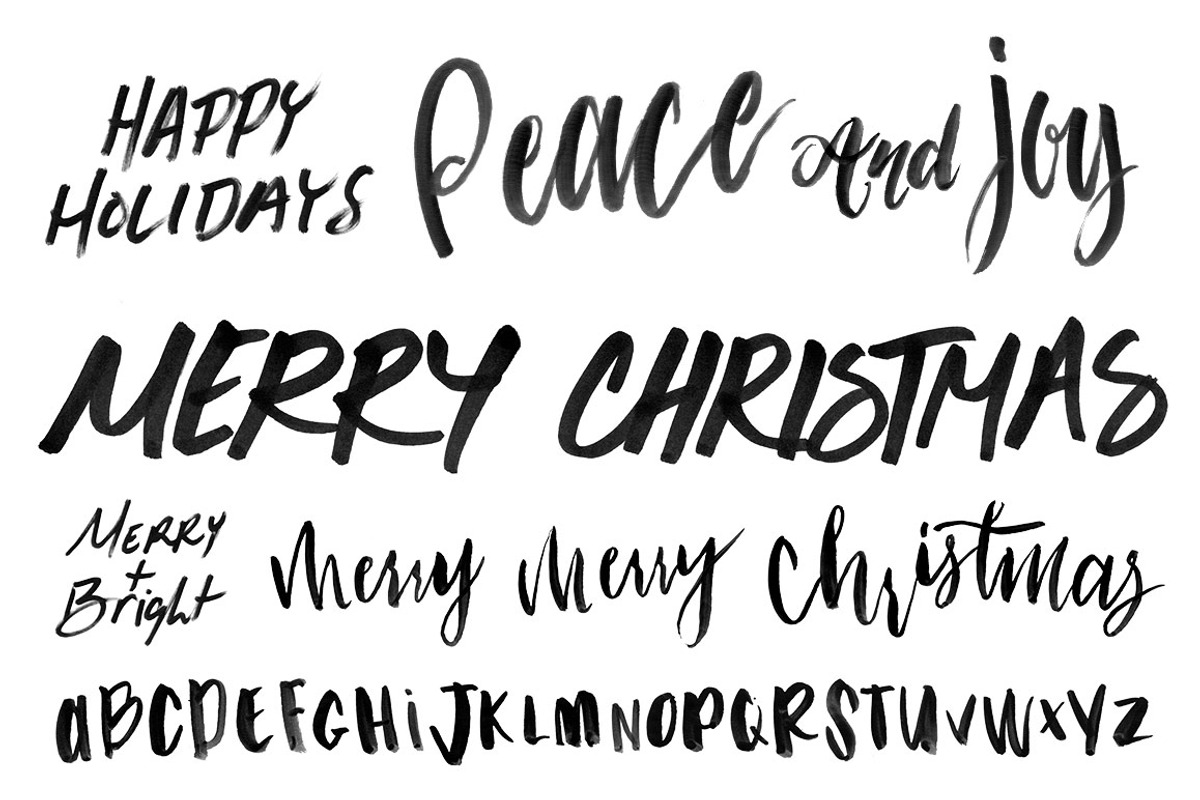 HAPPY
HOLIDAYS
Peace and joy
MERRY CHRISTMAS
MERRY
+
Bright
Merry Merry Christmas
aBCDEFGHiJKLMNOPQRSTUVWXYZ